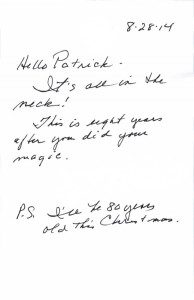 8-28-14
Hello Patrick.
It's all in the
neck!
This is eight years
after you did your
magic.
P.S. I'll be 80 years
old this Christmas.